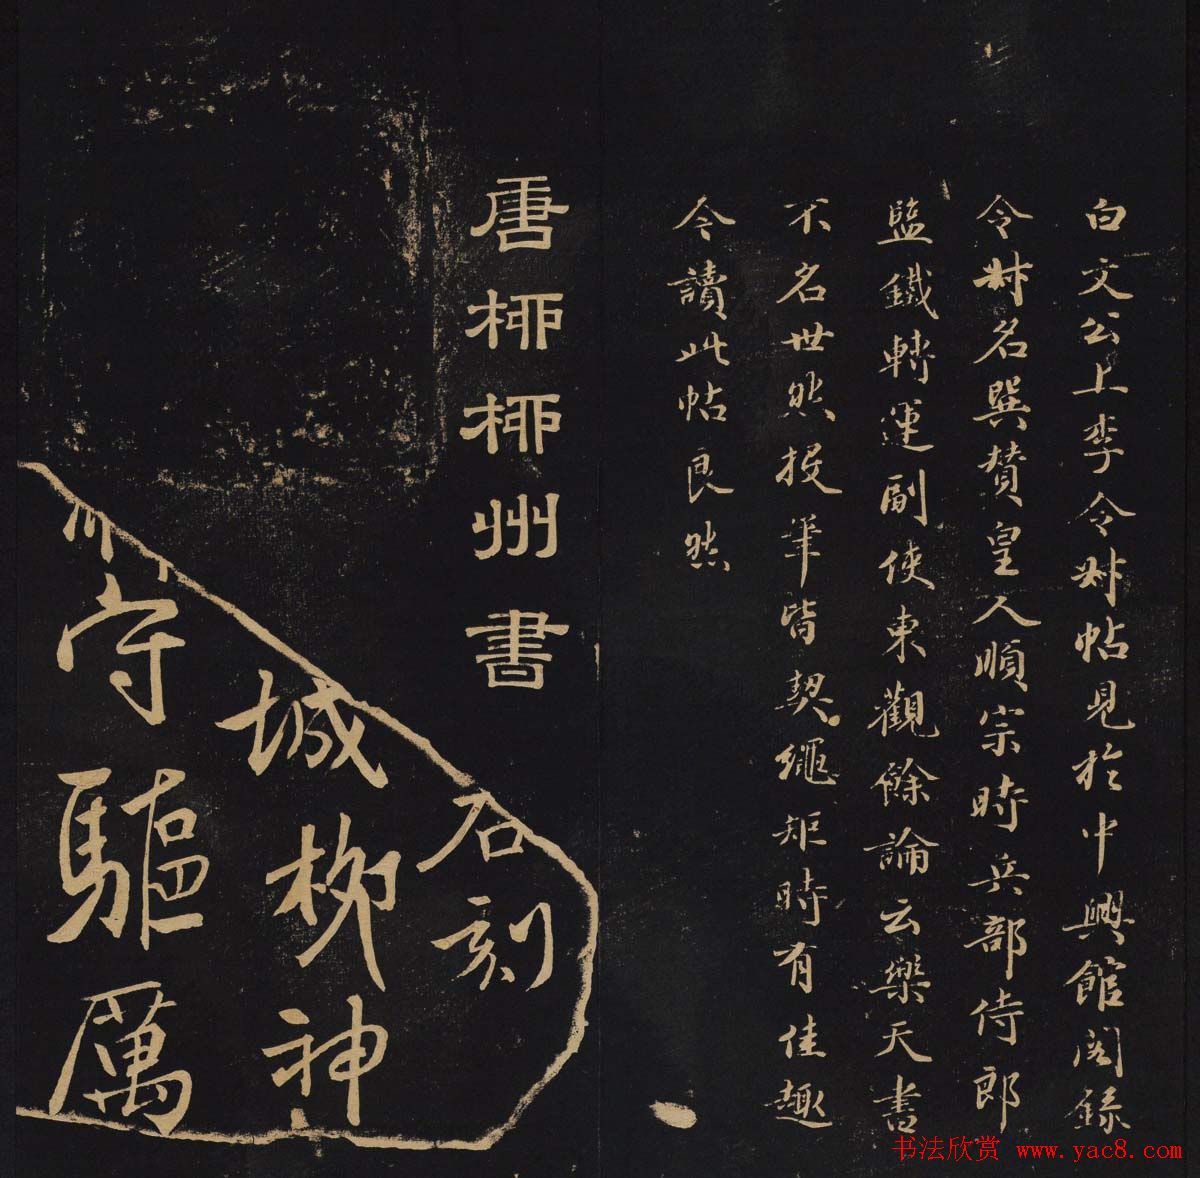 白文公上李令尌帖見於中興館閣錄
令尌名巽贊皇人順宗時兵部侍郎
監鐵轉運副使東觀餘論云樂天書
不名世然投筆皆契繩矩時有佳趣
今讀此帖良然
唐桺桺州書
石刻
城柳神
守驅厲
书法欣赏 www.yac8.com